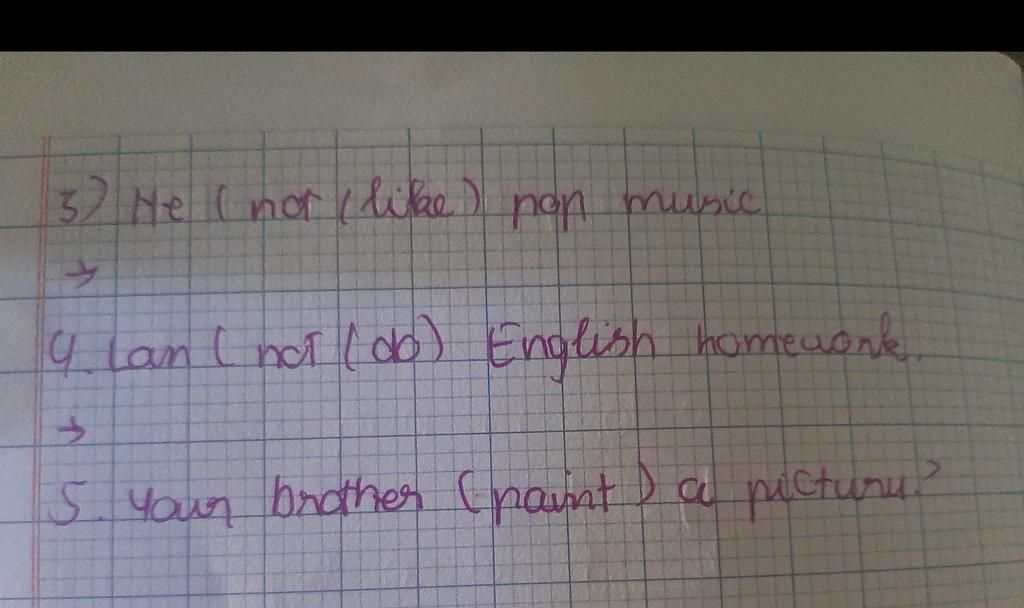 3) He (not (like) pop music
→
4. Lan (not (do) English homework.
→
5. Your brother (paint) a picture?